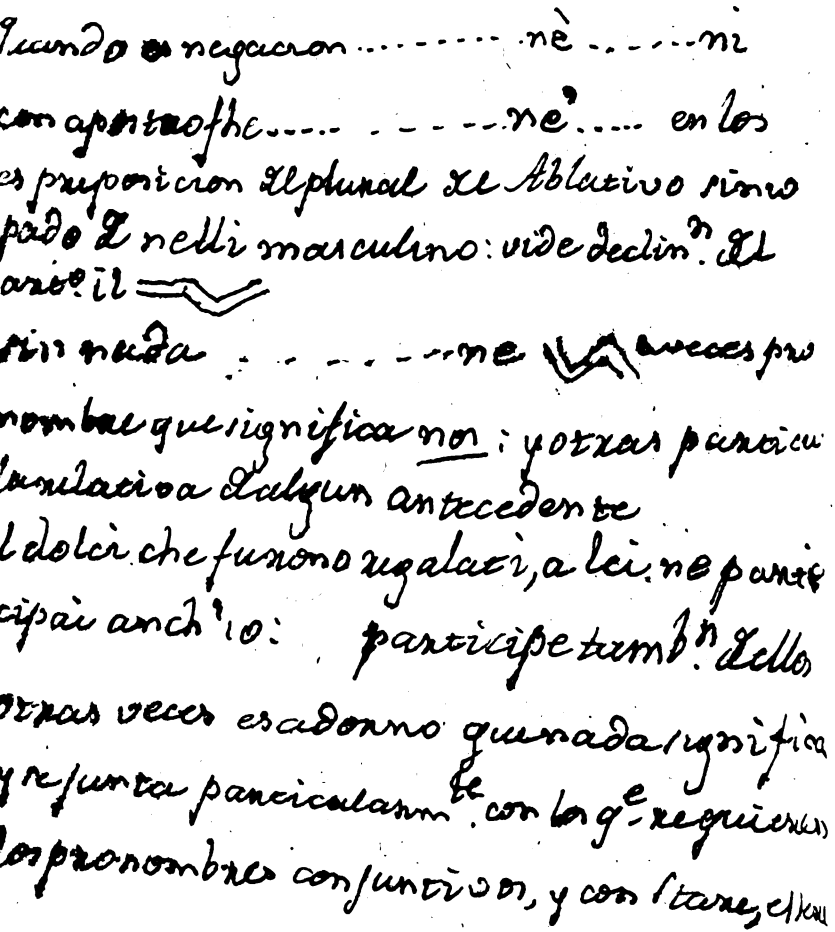 Quando es negacion .......... nè ....... ni
con apostrofhe..... - - - - ...ne'..... en los
es preposicion del plural de Ablativo sinco
pado de nelli masculino: vide declinⁿ. del
artº. il
sin nada . . - . - - - ne a veces pro
nombre que significa nos : y otras particu
la relativa de algun antecedente
I dolci che furono regalati, a lei. ne parte
cipai anch'io: participe tambⁿ. dellos
otras veces es adorno que nada significa
y se junta particularmᵗᵉ. con los qᵉ requieren
los pronombres conjuntivos, y con stare, essere